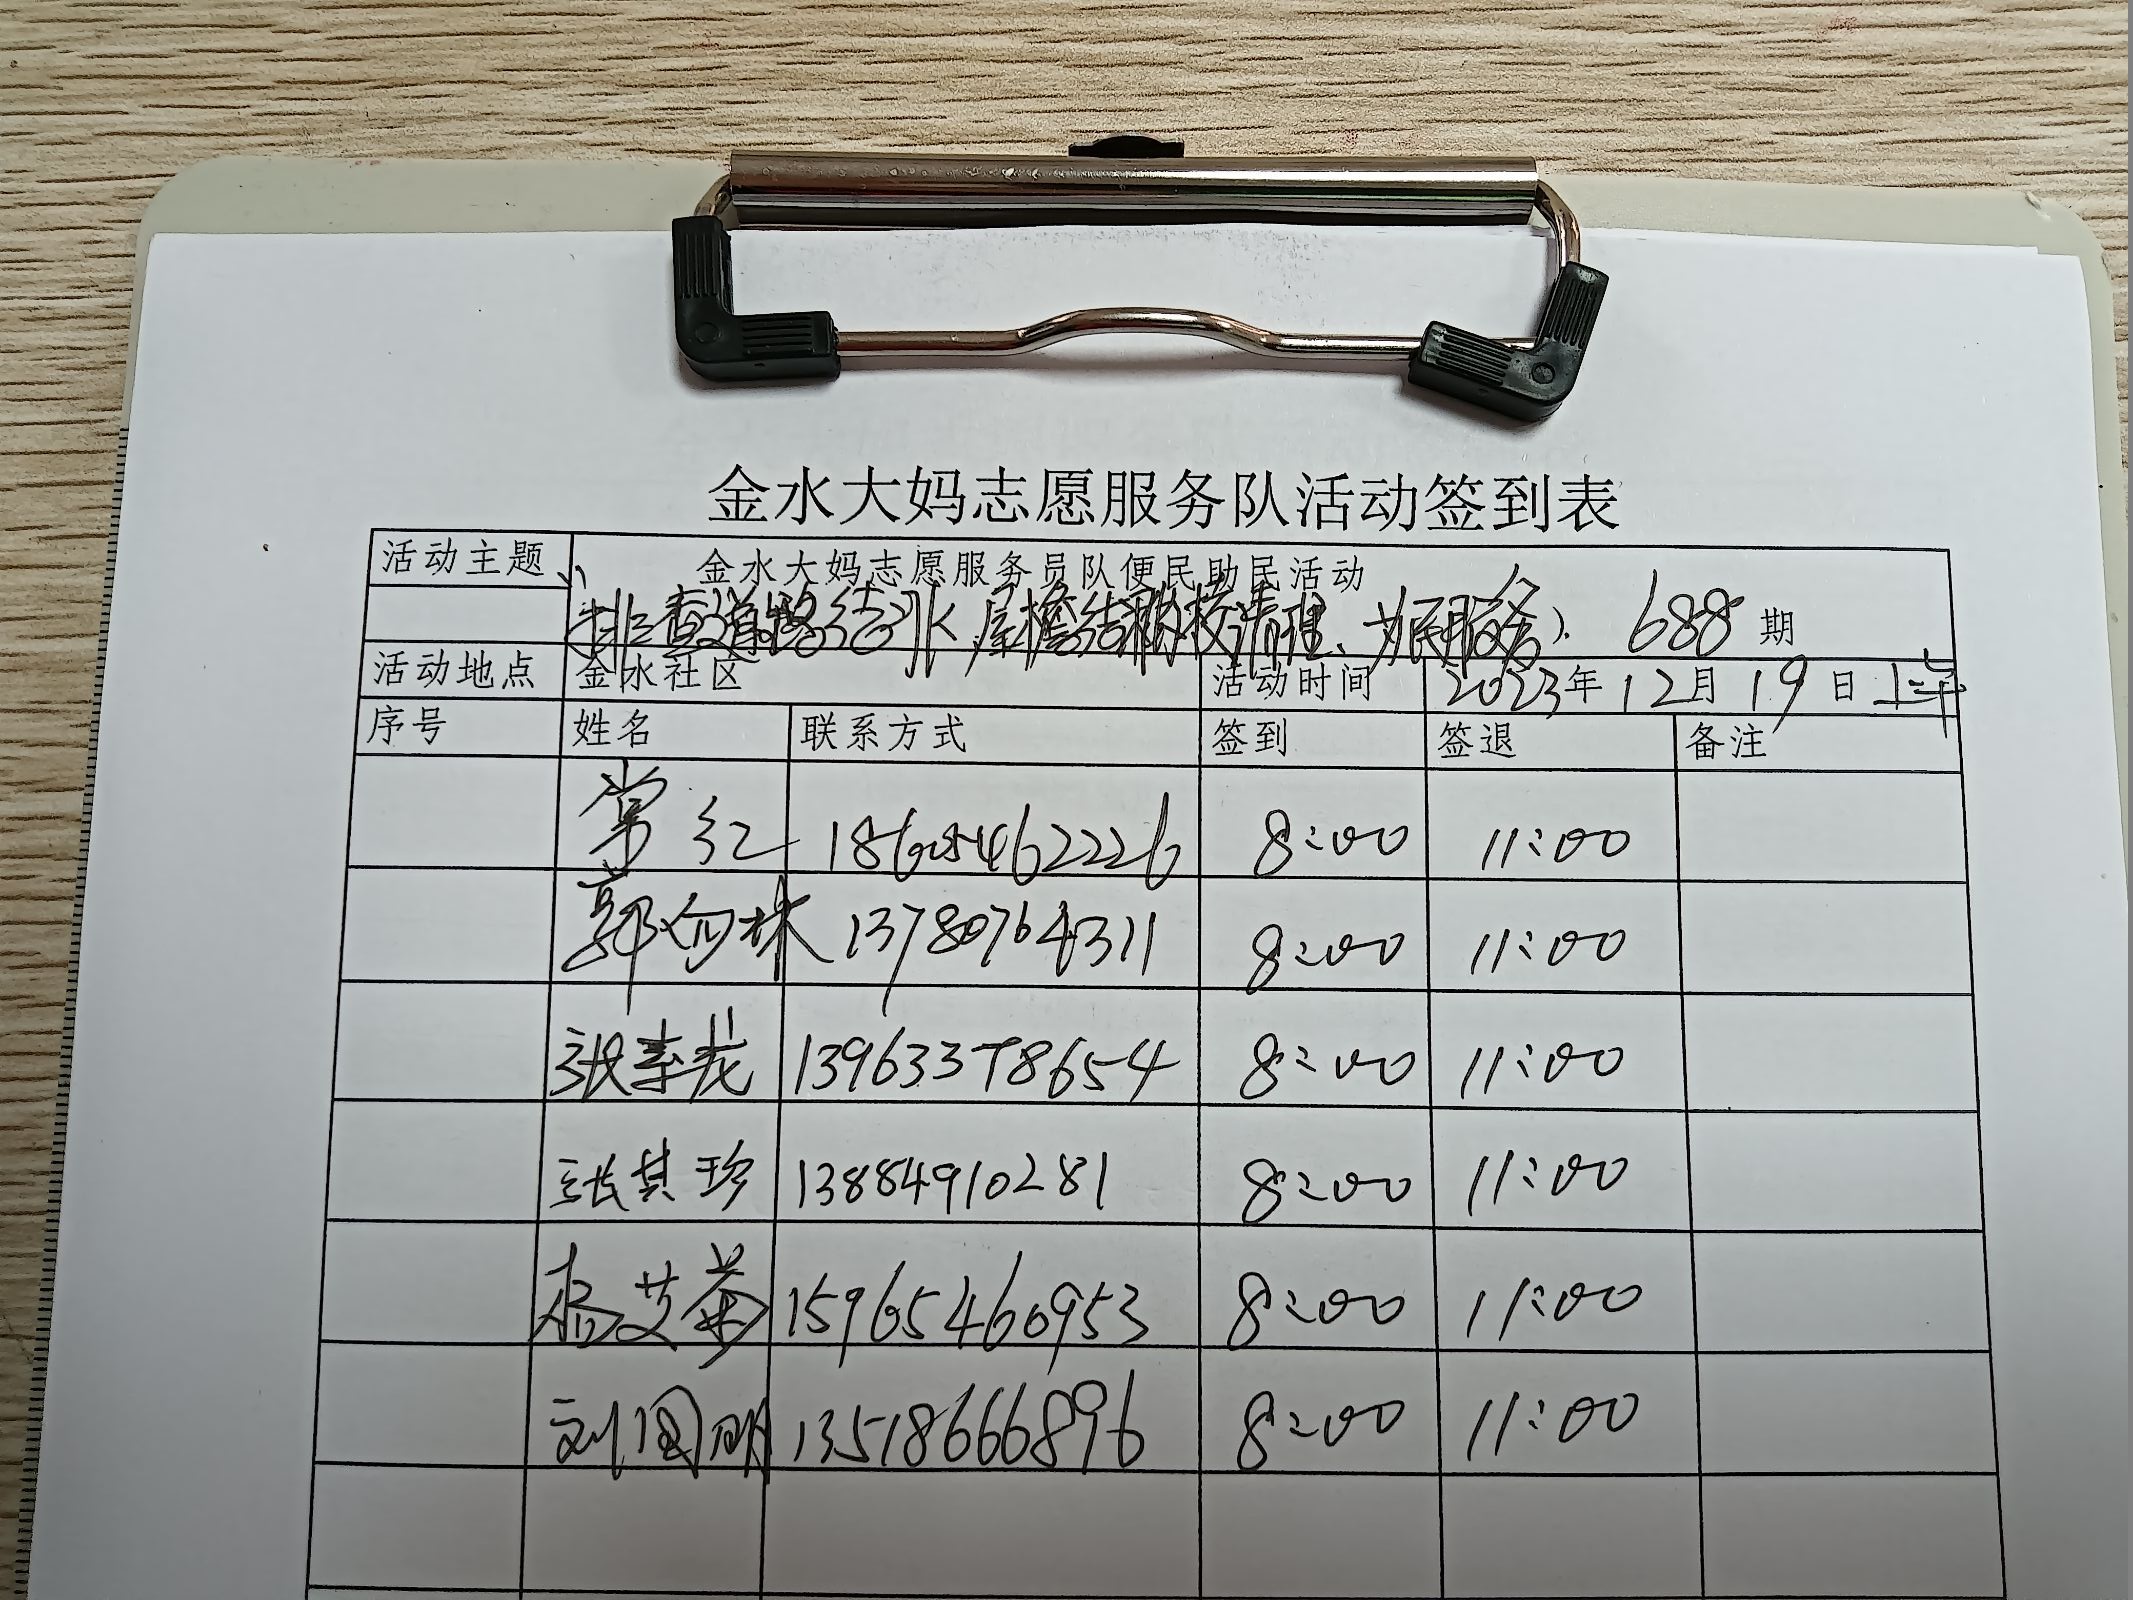 金水大妈志愿服务队活动签到表
活动主题 金水大妈志愿服务员队便民助民活动
排查道路结冰,屋檐结 清理、为民服务). 688 期
活动地点 金水社区 活动时间 2023年12月19日上午
序号 姓名 联系方式 签到 签退 备注
常红 18605462226 8:00 11:00
郭向林 13780764311 8:00 11:00
张 13963378654 8:00 11:00
张其珍 13884910281 8:00 11:00
杨艾 15965460953 8:00 11:00
刘国明 13518666896 8:00 11:00